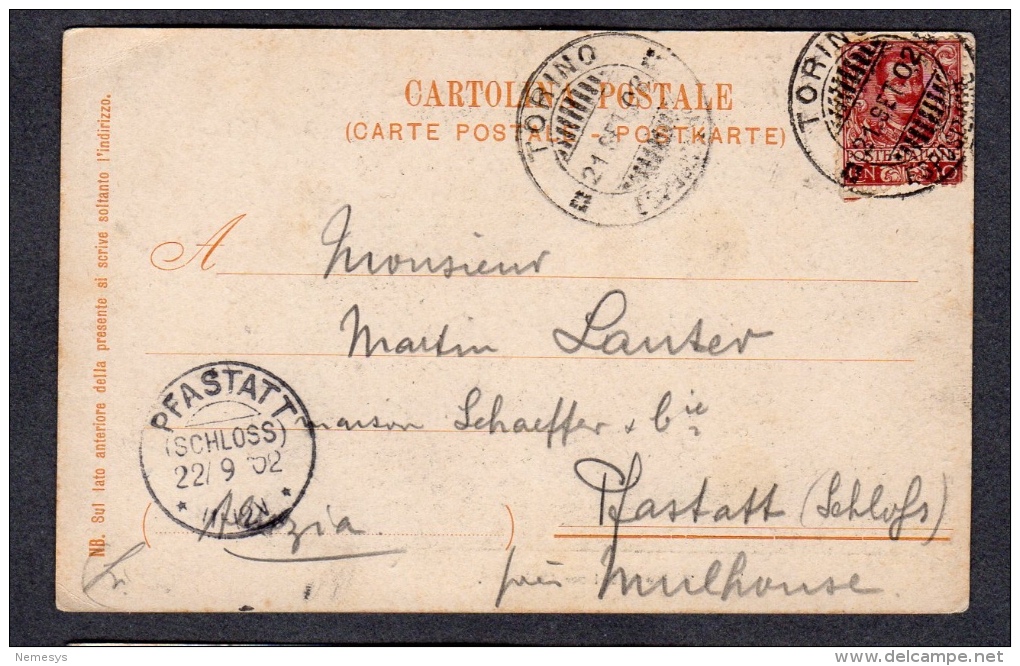 CARTOLINA POSTALE
(CARTE POSTALE - POSTKARTE)
TORINO
21 SET. 02
TORINO
21 SET. 02
POSTE ITALIANE
NB. Sul lato anteriore della presente si scrive soltanto l'indirizzo.
A Monsieur
Martin Lauter
maison Schaeffer & Cie
Pfastatt (Schloss)
près Mulhouse
Alsazia
PFASTATT
(SCHLOSS)
22/9 02
Nemesys
delcampe.net